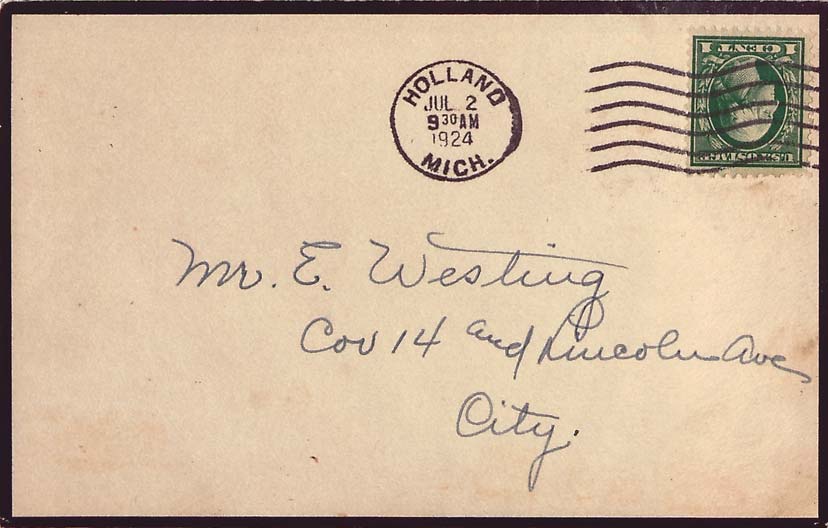 HOLLAND
JUL 2
9 30 AM
1924
MICH.
1 CENT 1
U.S. POSTAGE
Mr. E. Westing
Cor 14 and Lincoln Ave
City.